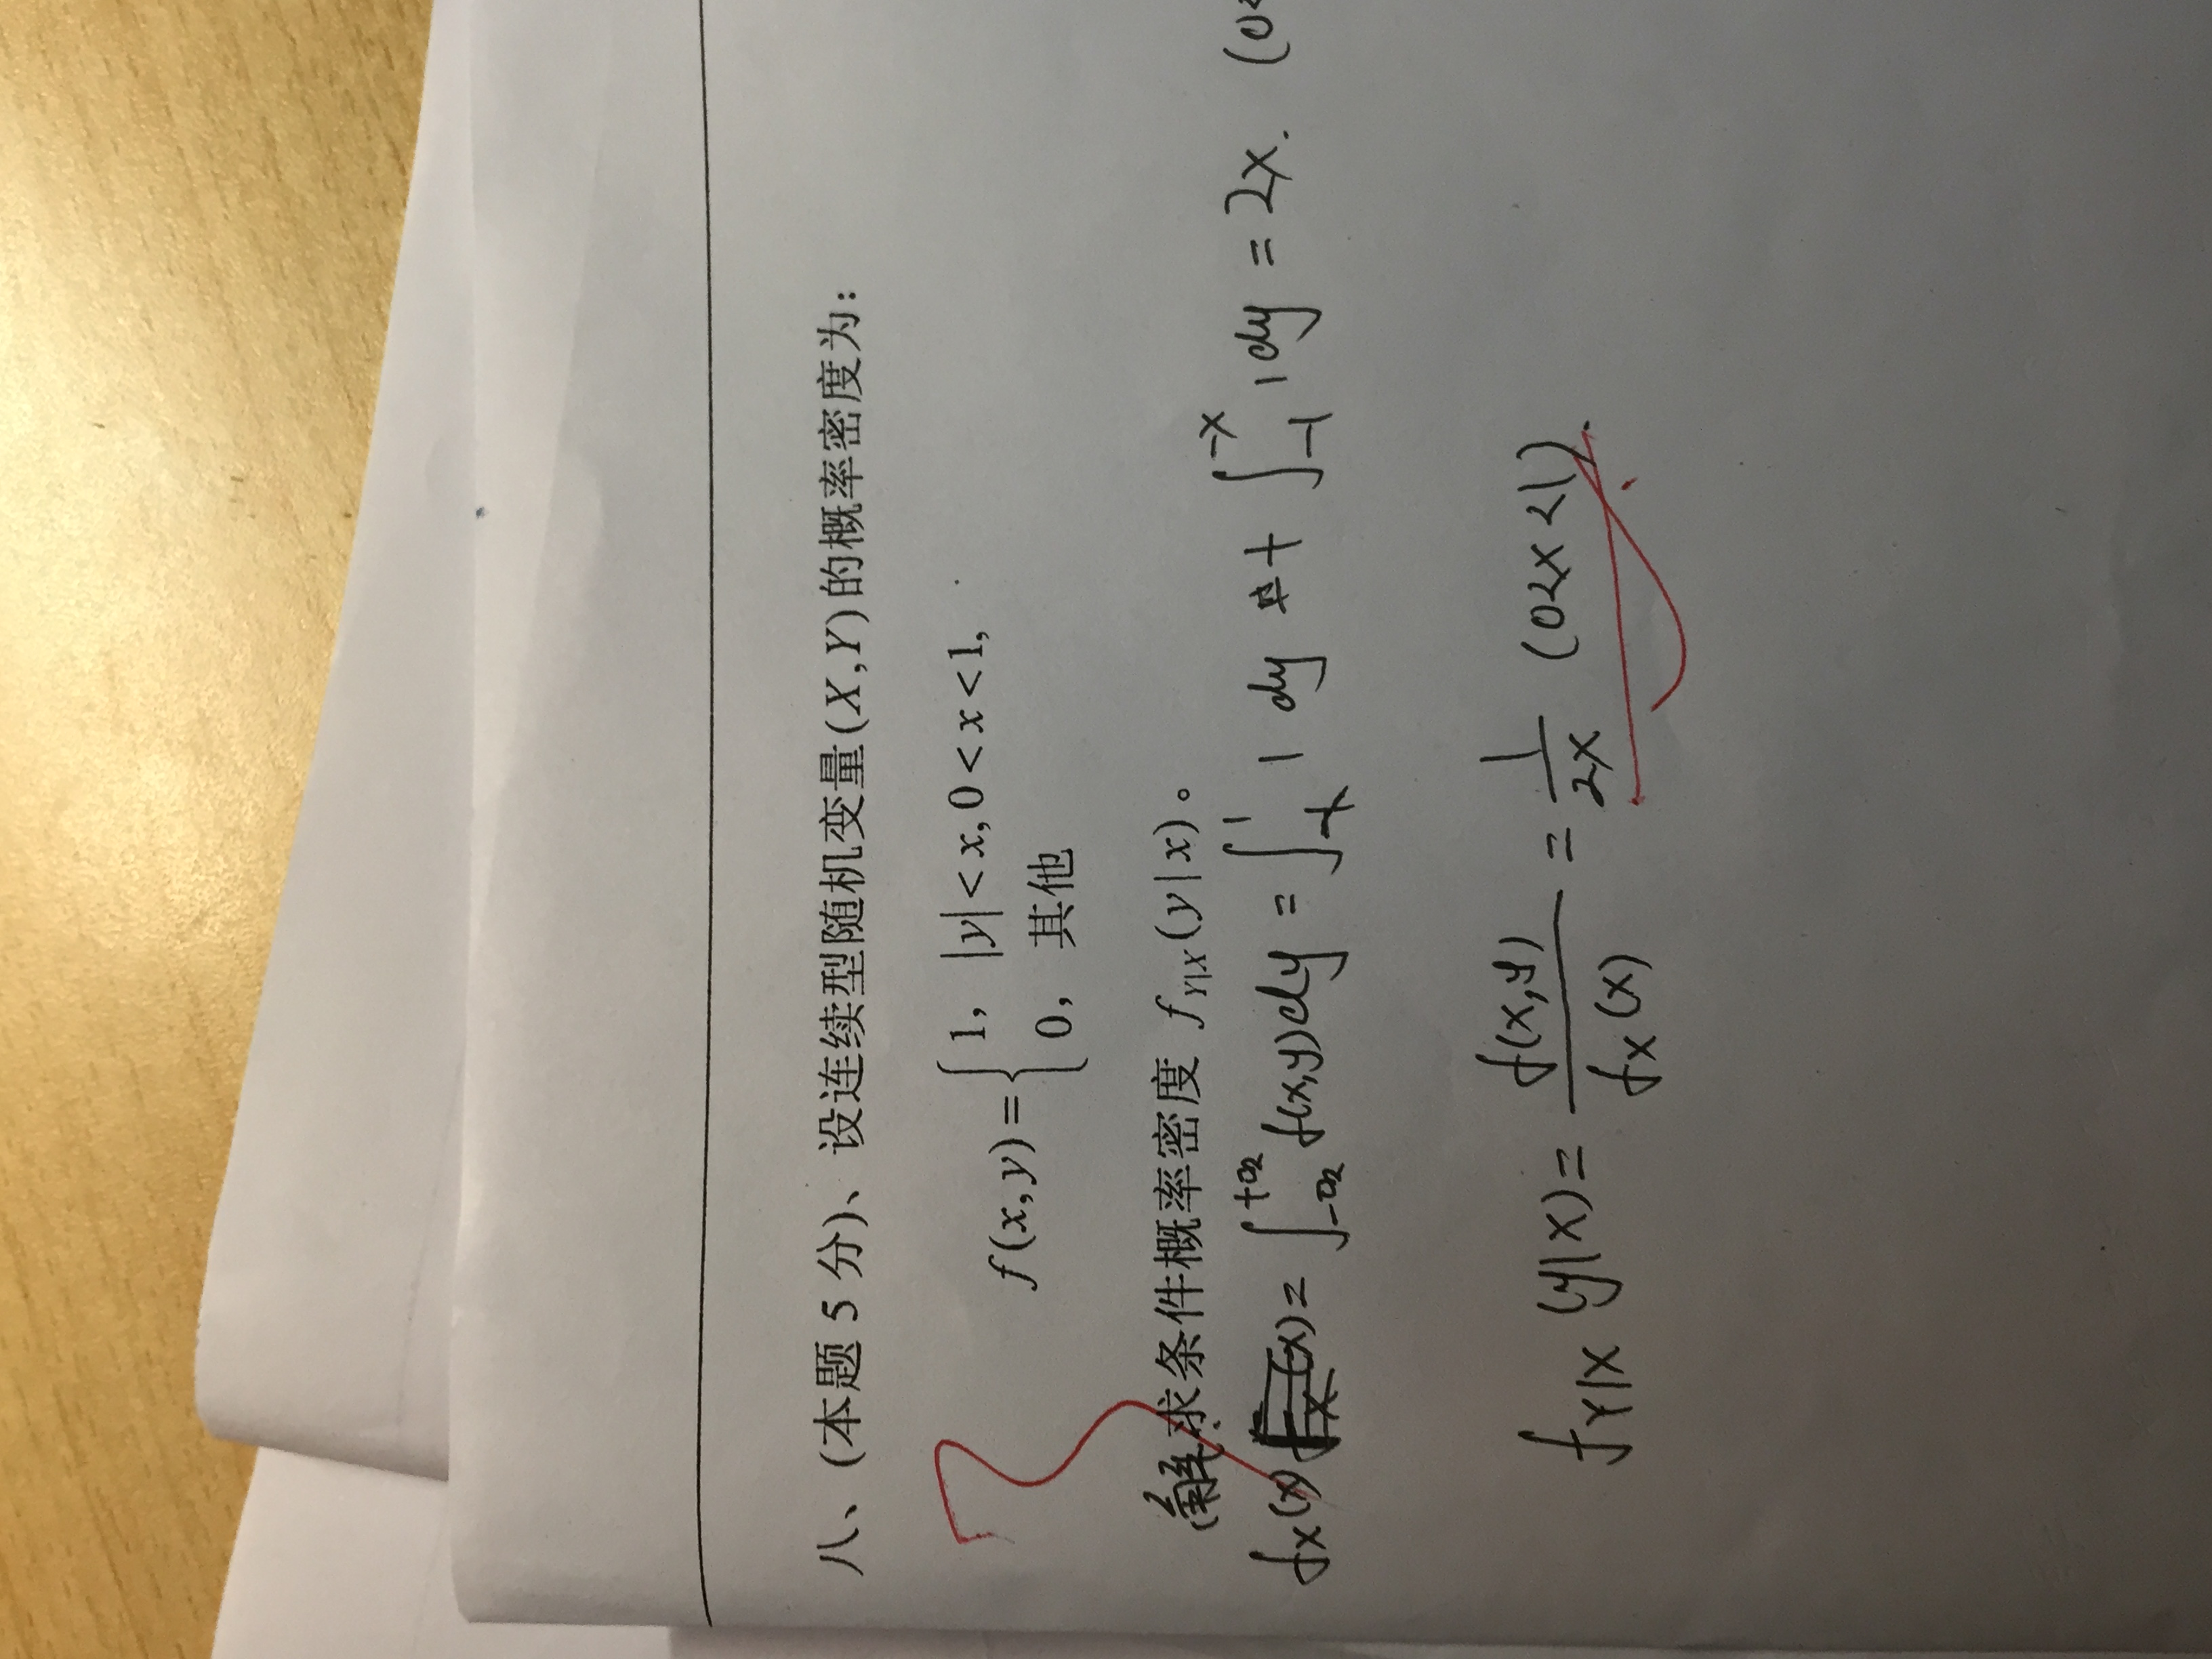 八、(本题 5 分)、设连续型随机变量(X,Y)的概率密度为:
f(x,y)={1, |y|<x,0<x<1,
0, 其他
解: 求条件概率密度 f_{Y|X}(y|x)。
f_X(x) (x)=∫_{-∞}^{+∞} f(x,y)dy = ∫_{-x}^{1} 1 dy + ∫_{-1}^{-x} 1dy = 2x. (0<
f_{Y|X}(y|x)= f(x,y)/f_X(x) = 1/2x (0<x<1).